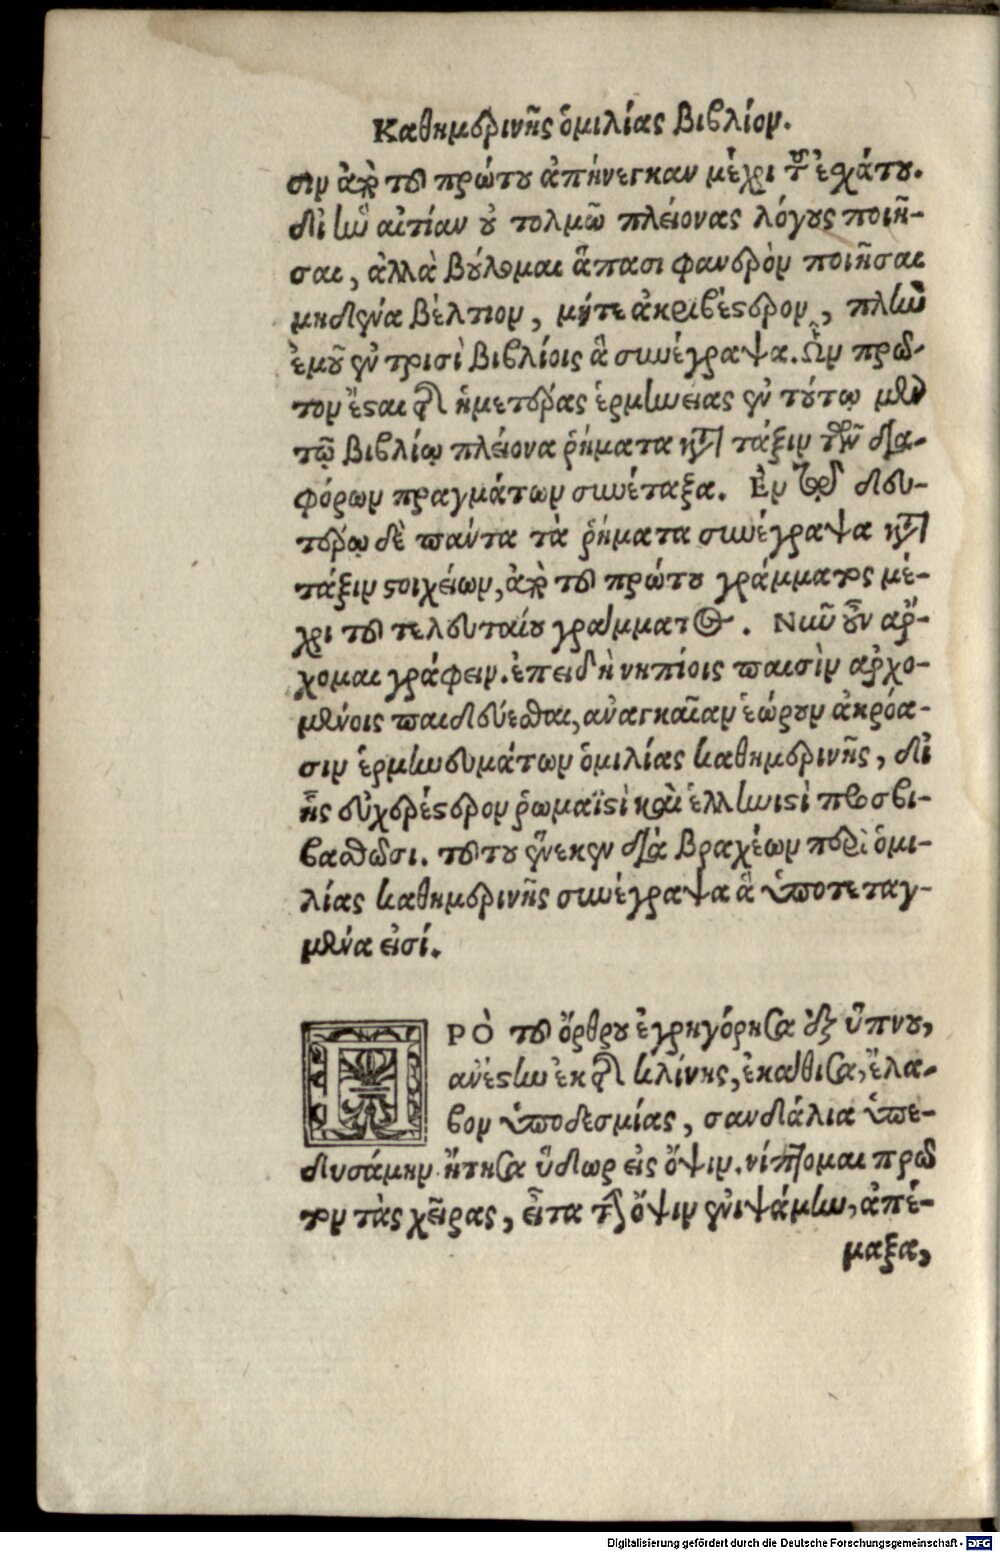 Καθημερινῆς ὁμιλίας βιβλίον.
σιν ἀπὸ τοῦ πρώτου ἀπήνεγκαν μέχρι τοῦ ἐσχάτου.
δι' ἣν αἰτίαν οὐ τολμῶ πλείονας λόγους ποιῆ-
σαι, ἀλλὰ βούλομαι ἅπασι φανερὸν ποιῆσαι
μηδένα βέλτιον, μήτε ἀκριβέστερον, πλὴν
ἐμοῦ ἐν τρισὶ βιβλίοις ἃ συνέγραψα. Ὧν πρῶ-
τον ἔσαι τῆς ἡμετέρας ἑρμηνείας ἐν τούτῳ μὲν
τῷ βιβλίῳ πλείονα ῥήματα κατὰ τάξιν τῶν δια-
φόρων πραγμάτων συνέταξα. Ἐν τῷ δευ-
τέρῳ δὲ πάντα τὰ ῥήματα συνέγραψα κατὰ
τάξιν στοιχείων, ἀπὸ τοῦ πρώτου γράμματος μέ-
χρι τοῦ τελευταίου γράμματος. Νῦν οὖν ἄρ-
χομαι γράφειν. ἐπειδὴ νηπίοις παισὶν ἀρχο-
μένοις παιδεύεσθαι, ἀναγκαῖαν ἑώρουν ἀκρόα-
σιν ἑρμηνευμάτων ὁμιλίας καθημερινῆς, δι'
ἧς εὐχερέστερον ῥωμαϊστὶ καὶ ἑλληνιστὶ προσβι-
βασθῶσι. τούτου ἕνεκεν διὰ βραχέων περὶ ὁμι-
λίας καθημερινῆς συνέγραψα ἃ ὑποτεταγ-
μένα εἰσί.
ΡῸ τοῦ ὄρθρου ἐγρηγόρησα ἐξ ὕπνου,
ἀνέστην ἐκ τῆς κλίνης, ἐκάθισα, ἔλα-
βον ὑποδεσμίας, σανδάλια ὑπε-
δυσάμην. ᾔτησα ὕδωρ εἰς ὄψιν. νίπτομαι πρῶ
τον τὰς χεῖρας, εἶτα τὴν ὄψιν ἐνιψάμην, ἀπέ-
μαξα,
Digitalisierung gefördert durch die Deutsche Forschungsgemeinschaft - DFG